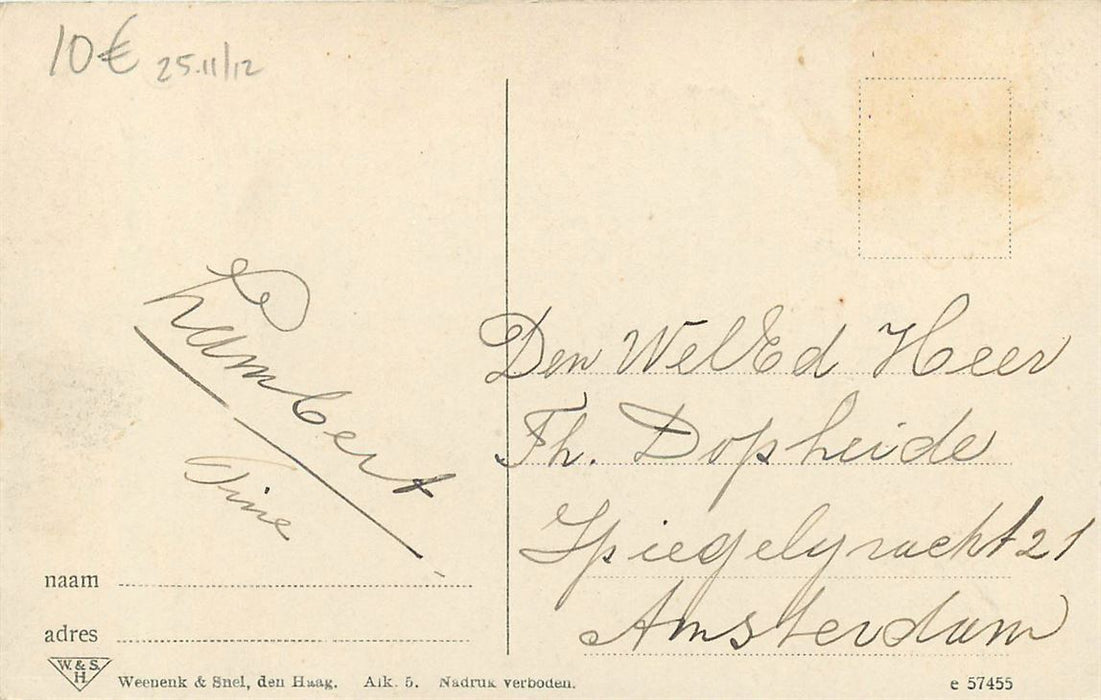 10€ 25.11/12
Lambert
Tine
Den WelEd Heer
Th. Dopheide
Spiegelgracht 21
Amsterdam
naam
adres
W. & S.
H.
Weenenk & Snel, den Haag. Afk. 5. Nadruk verboden.
e 57455